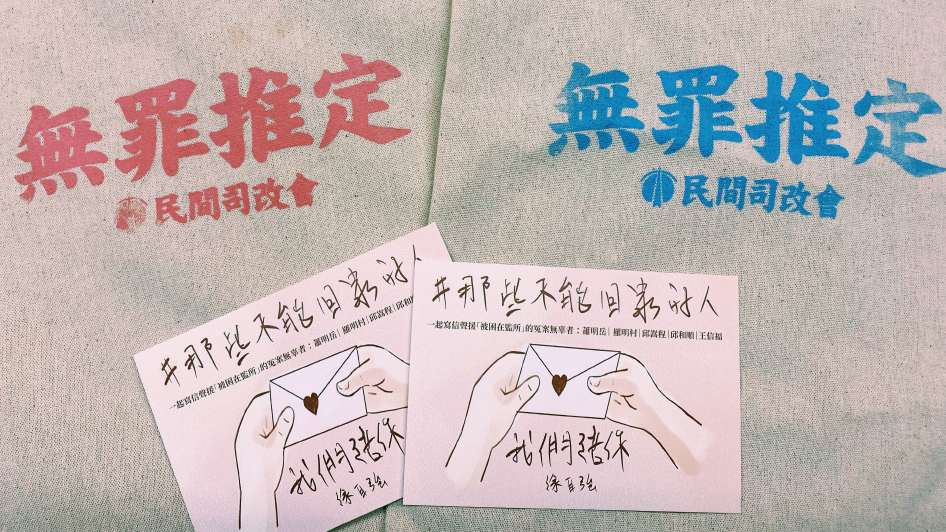 無罪推定
民間司改會
無罪推定
民間司改會
#那些不能回家的人
一起寫信聲援「被困在監所」的冤案無辜者：蕭明岳|羅明村|邱嵩程|邱和順
我們陪你
徐自強
#那些不能回家的人
一起寫信聲援「被困在監所」的冤案無辜者：蕭明岳|羅明村|邱嵩程|邱和順|王信福
我們陪你
徐自強